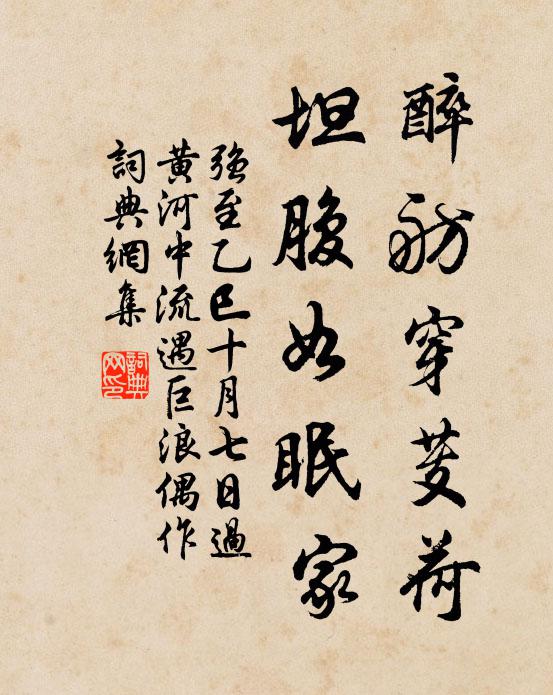 醉舫穿菱荷
坦腹如眠家
強至乙巳十月七日過
黄河中流遇巨浪偶作
詞典網集
詞典
网印